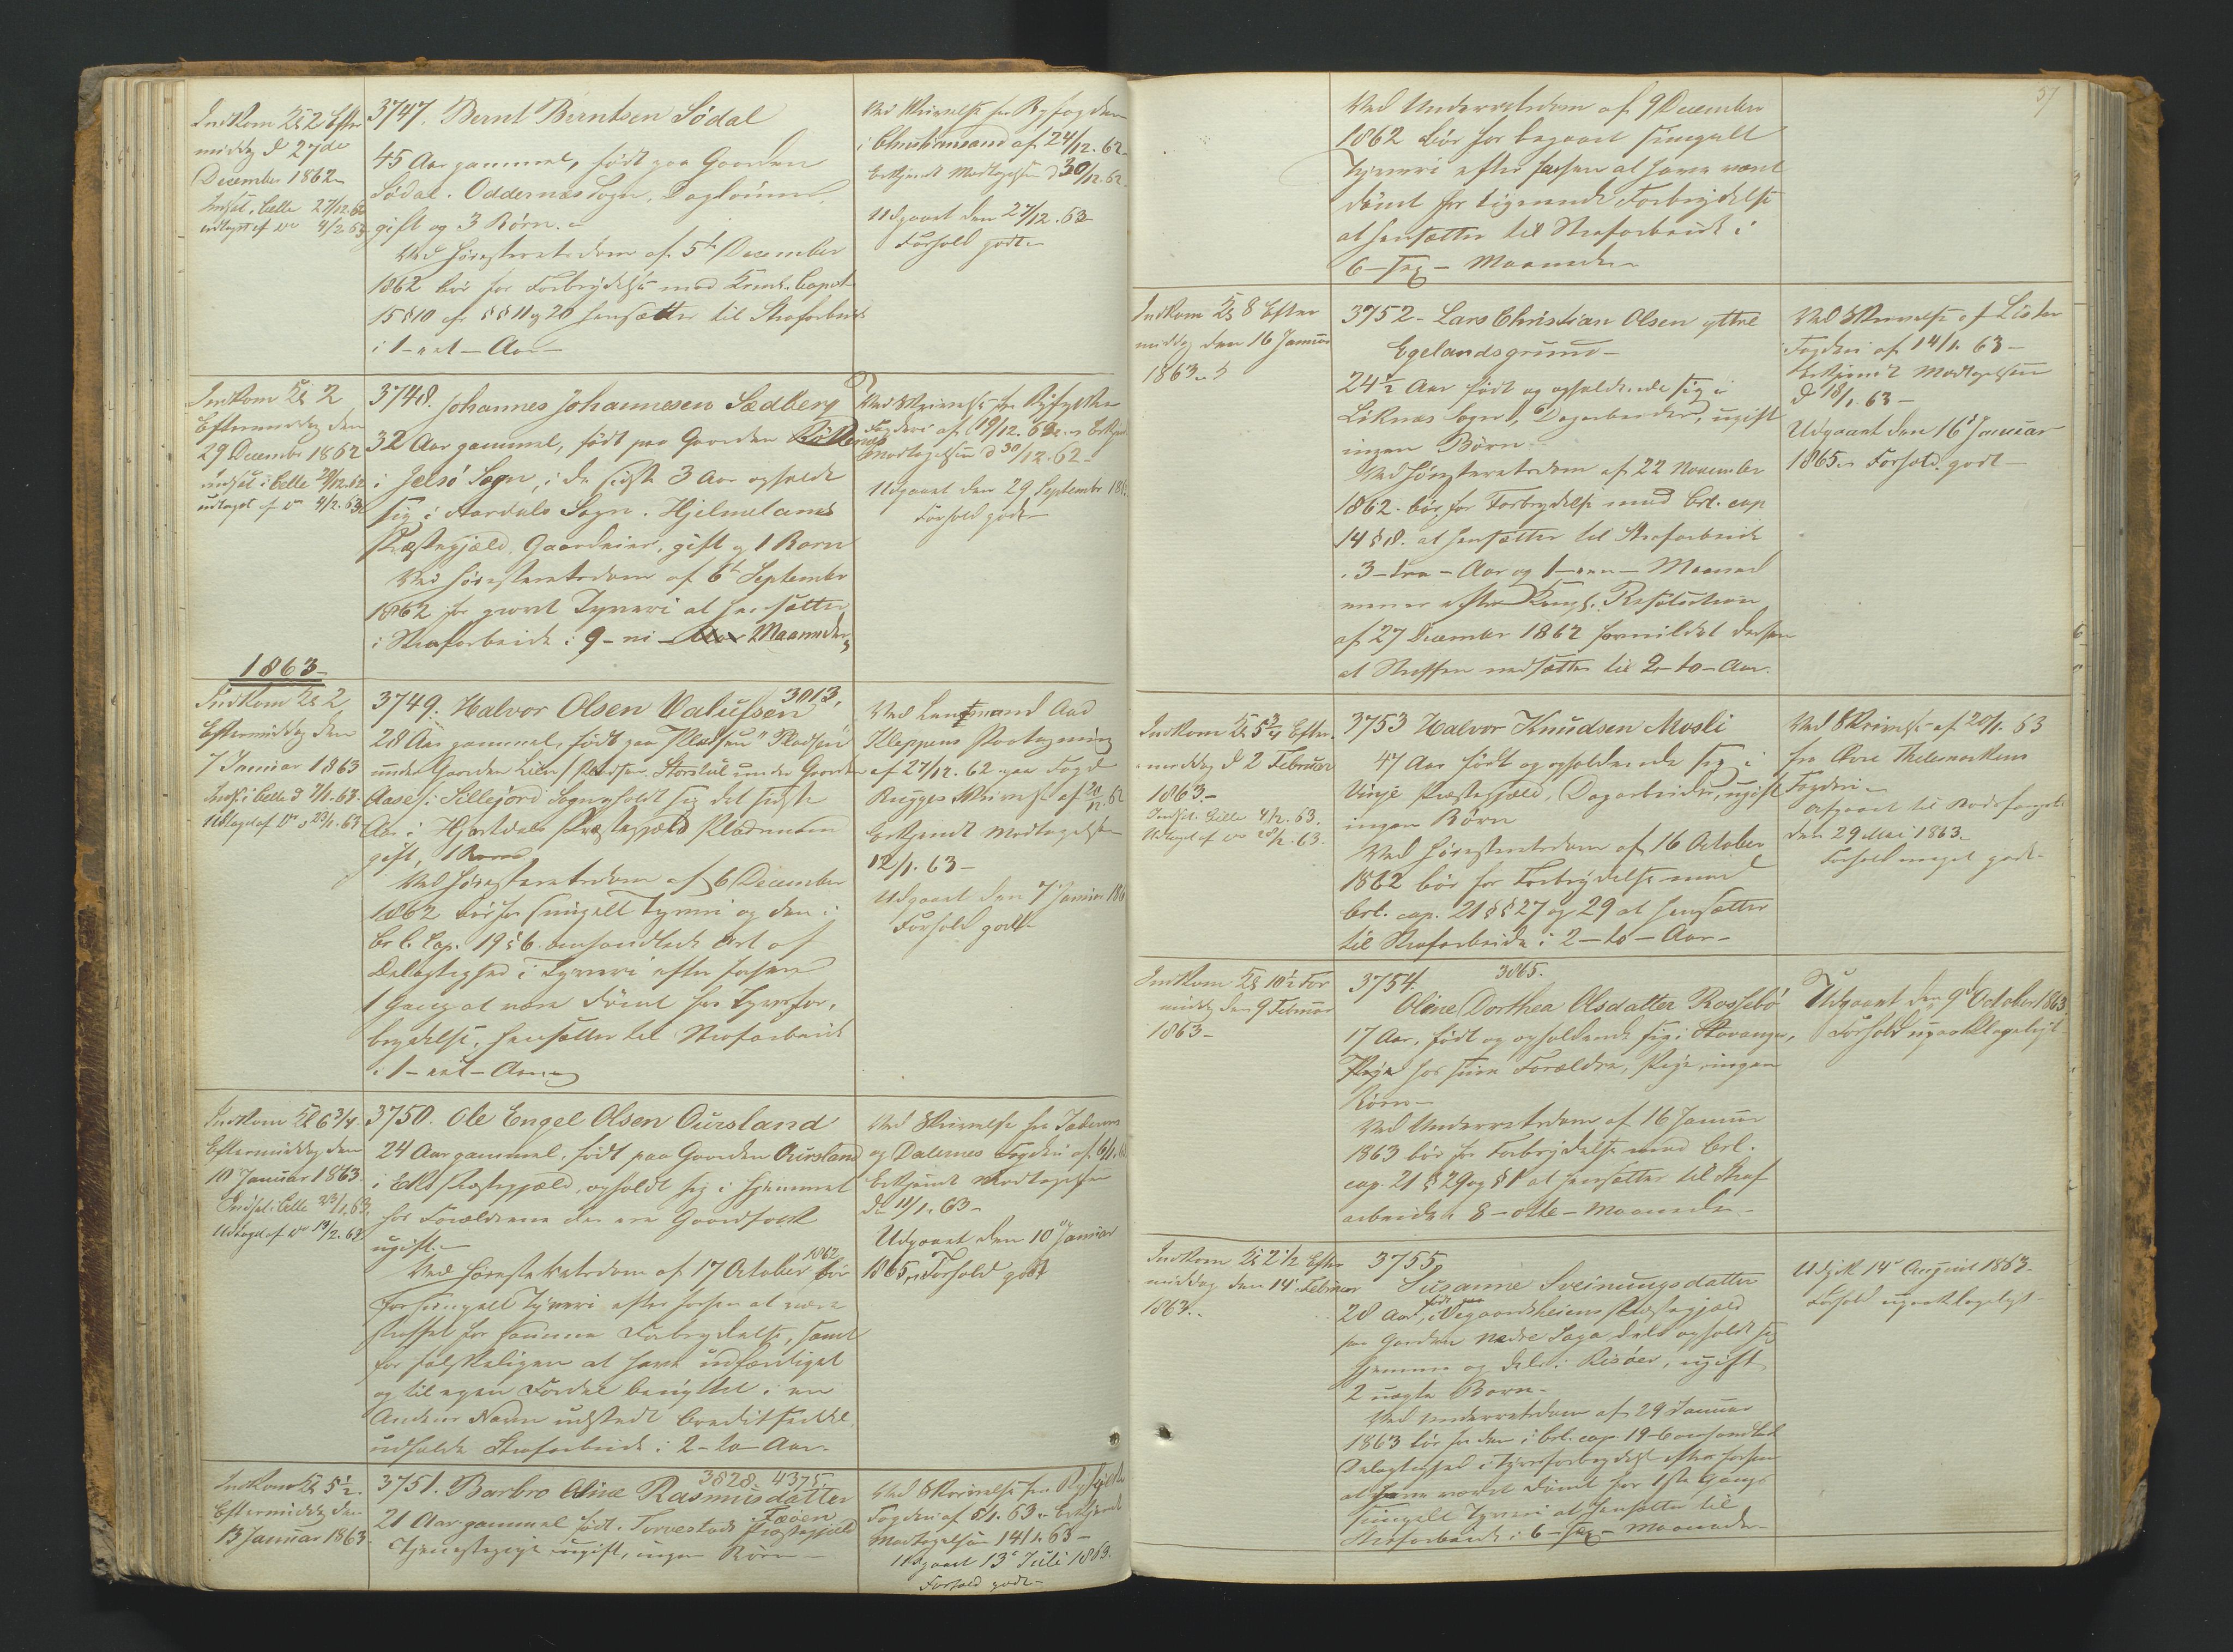 Indkom Kl 2 Efter
middag d 27de
December 1862
Indsat i Celle 27/12.62
udtaget af do 4/2.63
3747. Bernt Berntsen Södal
45 Aar gammel, født paa Gaarden
Södal. Oddernæs Sogn, Dagleier,
gift og 3 Börn.
Ved Höiesteretsdom af 5te December
1862 bör for Forbrydelse mod Crml. Capt.
15 § 10 cfr §§ 11 og 20 hensættes til Strafarbeide
i 1 - eet - Aar -
Ved Skrivelse fra Byfogden
i Christiansand af 24/12.62
Erkjendt Modtagelsen d 30/12.62.
Udgaaet den 27/12.63
Forhold godt
Indkom Kl 2
Eftermiddag den
29 December 1862
indsat i Celle 29/12.62
udtaget af do 4/2.63
3748. Johannes Johannesen Sædberg
32 Aar gammel, født paa Gaarden
i Jelsö Sogn, i de sidste 3 Aar opholdt
sig i Aardals Sogn. Hjelmelands
Præstegjæld, Gaardeier, gift og 1 Barn
Ved Höiesteretsdom af 6te September
1862 for grovt Tyveri at hensættes
i Strafarbeide i 9 - ni - Aar Maaneder,
Ved Skrivelse fra Ryfylke
Fogderi af 19/12.62. Erkjendt
Modtagelsen d 30/12.62
Udgaaet den 29 September 186
Forhold godt
1863
Indkom Kl 2
Eftermiddag den
7 Januar 1863
Inds. i Celle d 7/1.63.
Udtaget af do d 23/1.63
3749. Halvor Olsen Valufsen 3013.
28 Aar gammel, født paa Pladsen
under Gaarden Lien / Pladsen Storslul under Gaarden
Aase / i Sillejord Sogn opholdt sig det sidste
Aar i Hjertdals Præstegjæld Pladsmand
gift, 1 Barn
Ved Höiesteretsdom af 6 December
1862 bör for simpelt Tyveri og den i
Crl. Cap. 19 § 6 omhandlede Art af
Delagtighed i Tyveri efter forhen
1 Gang at være dömt for Tyvsfor-
brydelse, hensættes til Strafarbeide
i 1 - eet - Aar
Ved Lensmand Aad
Kleppens Paategning
af 27/12.62 paa Foged
Rugges Skrivelse af 20/12.62
Erkjendt Modtagelsen
12/1.63 -
Udgaaet den 7 Januar 186
Forhold godt
Indkom Kl 6 3/4
Eftermiddag den
10 Januar 1863.
Indsat i Celle 23/1.63.
Udtaget af do 13/2.63
3750. Ole Engel Olsen Oursland
24 Aar gammel, født paa Gaarden Oursland
i Præstegjæld, opholdt sig i Hjemmet
hos Forældrene der ere Gaardfolk
ugift.
Ved Höiesteretsdom af 17 October 1862 bör
for simpelt Tyveri efter forhen at være
straffet for samme Forbrydelse, samt
for falskeligen at have udfærdiget
og til egen Fordel benyttet i en
Andens Navn udstedt Creditseddel,
udholde Strafarbeide i 2 - to - Aar.
Ved Skrivelse fra Jæderens
og Dalernes Fogderi af 6/1.
Erkjendt Modtagelsen
d 11/1.63 -
Udgaaet den 10 Januar
1865, Forhold godt
Indkom Kl 5 1/2.
Eftermiddag den
13 Januar 1863.
3828. 4375.
3751. Barbro Aline Rasmusdatter
Fæöen
21 Aar gammel født i Torvestads Præstegjæld
Tjenestepige ugift, ingen Börn -
Ved Skrivelse fra Ryfylke
Fogderi af 5/1.63. Erkjendt
Modtagelsen 14/1.63 -
Udgaaet 13 Juli 1863.
Forhold godt -
57
Ved Underretsdom af 9 December
1862 bör for begaaet simpelt
Tyveri efter forhen at have været
dömt for lignende Forbrydelse
at hensættes til Strafarbeide i
6 - sex - Maaneder
Indkom Kl 8 Efter
middag den 16 Januar
1863.
3752 - Lars Christian Olsen yttre
Egelandsgrund -
24 1/2 Aar født og opholdende sig i
Liknæs Sogn, Dagarbeider, ugift
ingen Börn
Ved Höiesteretsdom af 22 November
1862 - bör for Forbrydelse mod Crl. cap
14 § 18. at hensættes til Strafarbeide
i 3 - tre - Aar og 1 - een - Maaned
men er efter Kongl. Resolution
af 27 December 1862 formildet derhen
at Straffen nedsættes til 2 - to - Aar.
Ved Skrivelse af Lister
Fogderi af 14/1.63 -
Erkjendt Modtagelsen
d 18/1.63 -
Udgaaet den 16 Januar
1865. Forhold godt -
Indkom Kl 5 3/4 Efter-
middag d 2 Februar
1863. -
Indsat i Celle 4/2.63.
Udtaget af do 28/2.63.
3753 Halvor Knudsen Mosli
47 Aar født og opholdende sig i
Vinje Præstegjæld, Dagarbeider, ugift
ingen Börn
Ved Höiesteretsdom af 16 October
1862 bör for Forbrydelse mod
Crl. cap. 21 §§ 27 og 29 at hensættes
til Strafarbeide i 2 - to - Aar -
Ved Skrivelse af 20/1.63
fra Övre Thelemarkens
Fogderi -
Afgaaet til Bodsfængslet
den 29 Mai 1863.
Forhold meget godt -
Indkom Kl 10 1/2 For
middag den 9 Februar
1863 -
3754. 3065.
Oline Dorthea Olsdatter Rossebö
17 Aar, født og opholdende sig i Stavanger,
Pige hos sine Forældre, Pige, ingen
Börn -
Ved Underretsdom af 16 Januar
1863 bör for Forbrydelse mod Crl.
cap. 21 § 29 og § 1 at hensættes til Straf
arbeide i 8 - otte - Maaneder -
Udgaaet den 9de October 1863.
Forhold upaaklageligt -
Indkom Kl 2 1/2 Efter
middag den 14 Februar
1863. -
3755,
Susanne Sveinungsdatter
28 Aar, født i Vegaardsheiens Præstegjæld
paa Gaarden nedre Saga dels opholdt sig
hjemme og dels i Risöer, ugift
2 uægte Börn -
Ved Underretsdom af 29 Januar
1863 bör for den i Crl. cap. 19 - 6 omhandlede
Delagtighed i Tyvsforbrydelse efter forhen
at have været dömt for 1ste Gangs
simpelt Tyveri at hensættes til
Strafarbeide i 6 - sex - Maaneder -
Udgik 14 August 1863 -
Forhold upaaklageligt -